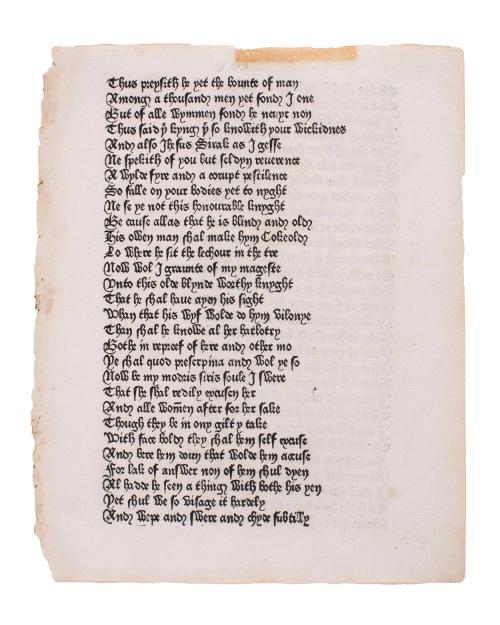 Thus preysith he yet the bounte of man
Among a thousand men yet fond I one
But of alle wymmen fond he neuyr non
Thus said yͤ kyng yͭ so knowith your wickidnes
And also Ihesus Sirak as I gesse
Ne spekith of you but seldyn reuerence
A wylde fyre and a corupt pestilence
So falle on your bodies yet to nyght
Ne se ye not this honourable knyght
Be cause allas that he is blind and old
His owen man shal make hym Cokeold
Lo where he sit the lechour in the tre
Now wol I graunte of my mageste
Vnto this olde blynde worthy knyght
That he shal haue ayen his sight
Whan that his wyf wolde do hym vilonye
Than shal he knowe al her harlotry
Bothe in repreef of here and other mo
Ye shal quod preserpina and wol ye so
Now be my modris siris soule I swere
That she shal redily excusen her
And alle women after for her sake
Though they be in ony gilt y take
With face bold they shal hem self excuse
And bere hem doun that wolde hem accuse
For lak of answer non of hem shul dyen
Al hadde he seen a thing with bothe his yen
Yet shul we so visage it hardely
And wepe and swere and chyde subtilly